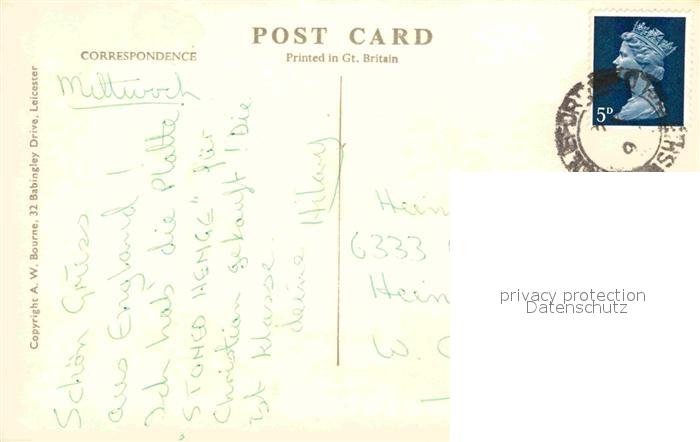 POST CARD
CORRESPONDENCE
Printed in Gt. Britain
Copyright A. W. Bourne, 32 Babingley Drive, Leicester
Mittwoch
Schön Grüss
aus England!
Ich hab's die Platte
"STONED HENGE" für
Christian gekauft! Die
ist klasse.
deine
Hilary.
5D
6
Hein
6333
Hein
W.
privacy protection
Datenschutz